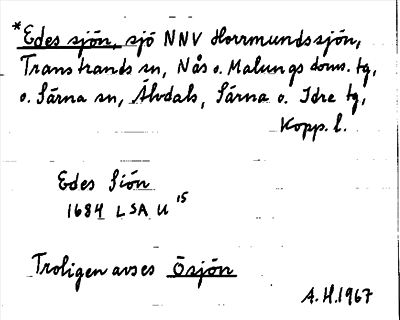 *Edes sjön, sjö NNV Horrmundssjön,
Transtrands sn, Nås o. Malungs doms. tg,
o. Särna sn, Älvdals, Särna o. Idre tg,
Kopp. l.
Edes Siön
1684 LSA U 15
Troligen avses Ösjön
A.H. 1967